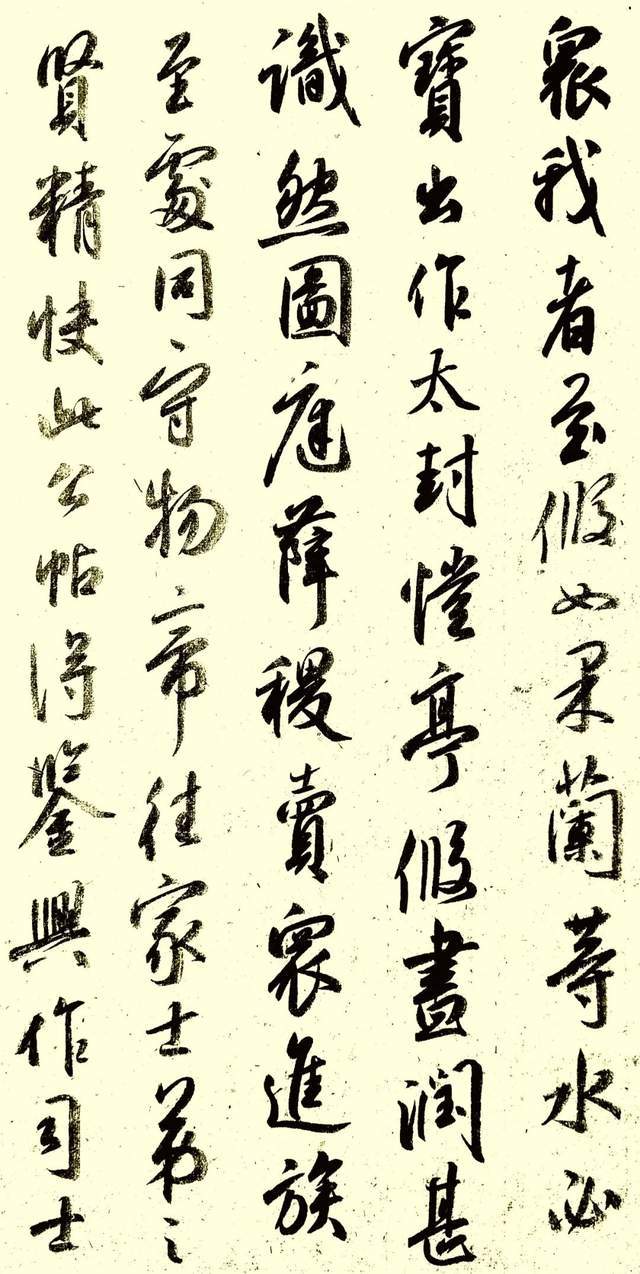 眾我者至假如果蘭等水必
寶出作太封憶亭假畫潤甚
識然圖庭薛稷賣眾進族
至處同守物帝往家士第之
賢精快此公帖得鑒興作司士